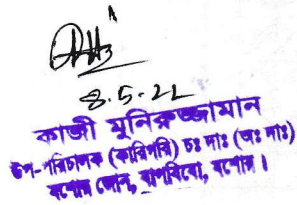 8.5.22
কাজী মুনিরুজ্জামান
উপ-পরিচালক (কারিগরি) চঃ দাঃ (অঃ দাঃ)
যশোর জোন, বাপবিবো, যশোর।